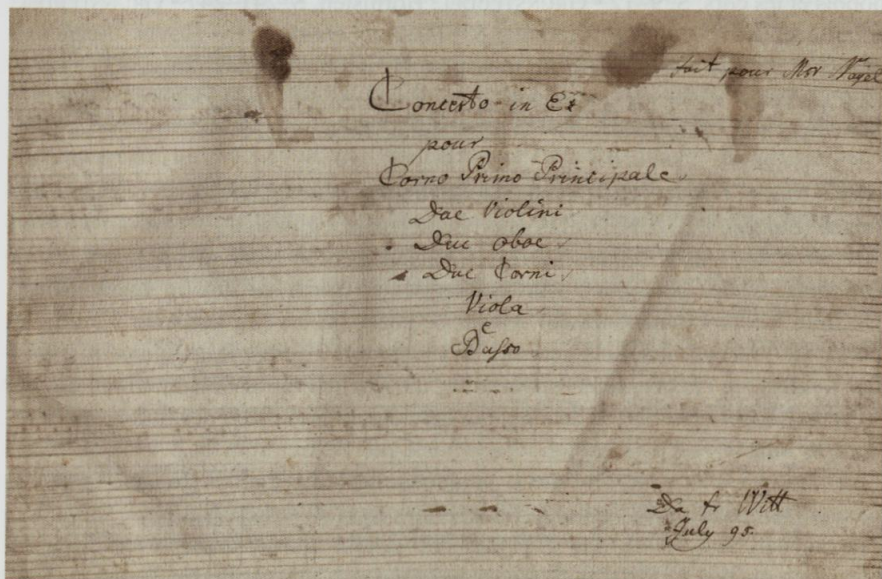 fait pour Msr Nagel
Concerto in Es
pour
Corno Primo Principale
Due Violini
Due oboe
Due Corni
Viola
e
Basso
Da fr Witt
July 95.